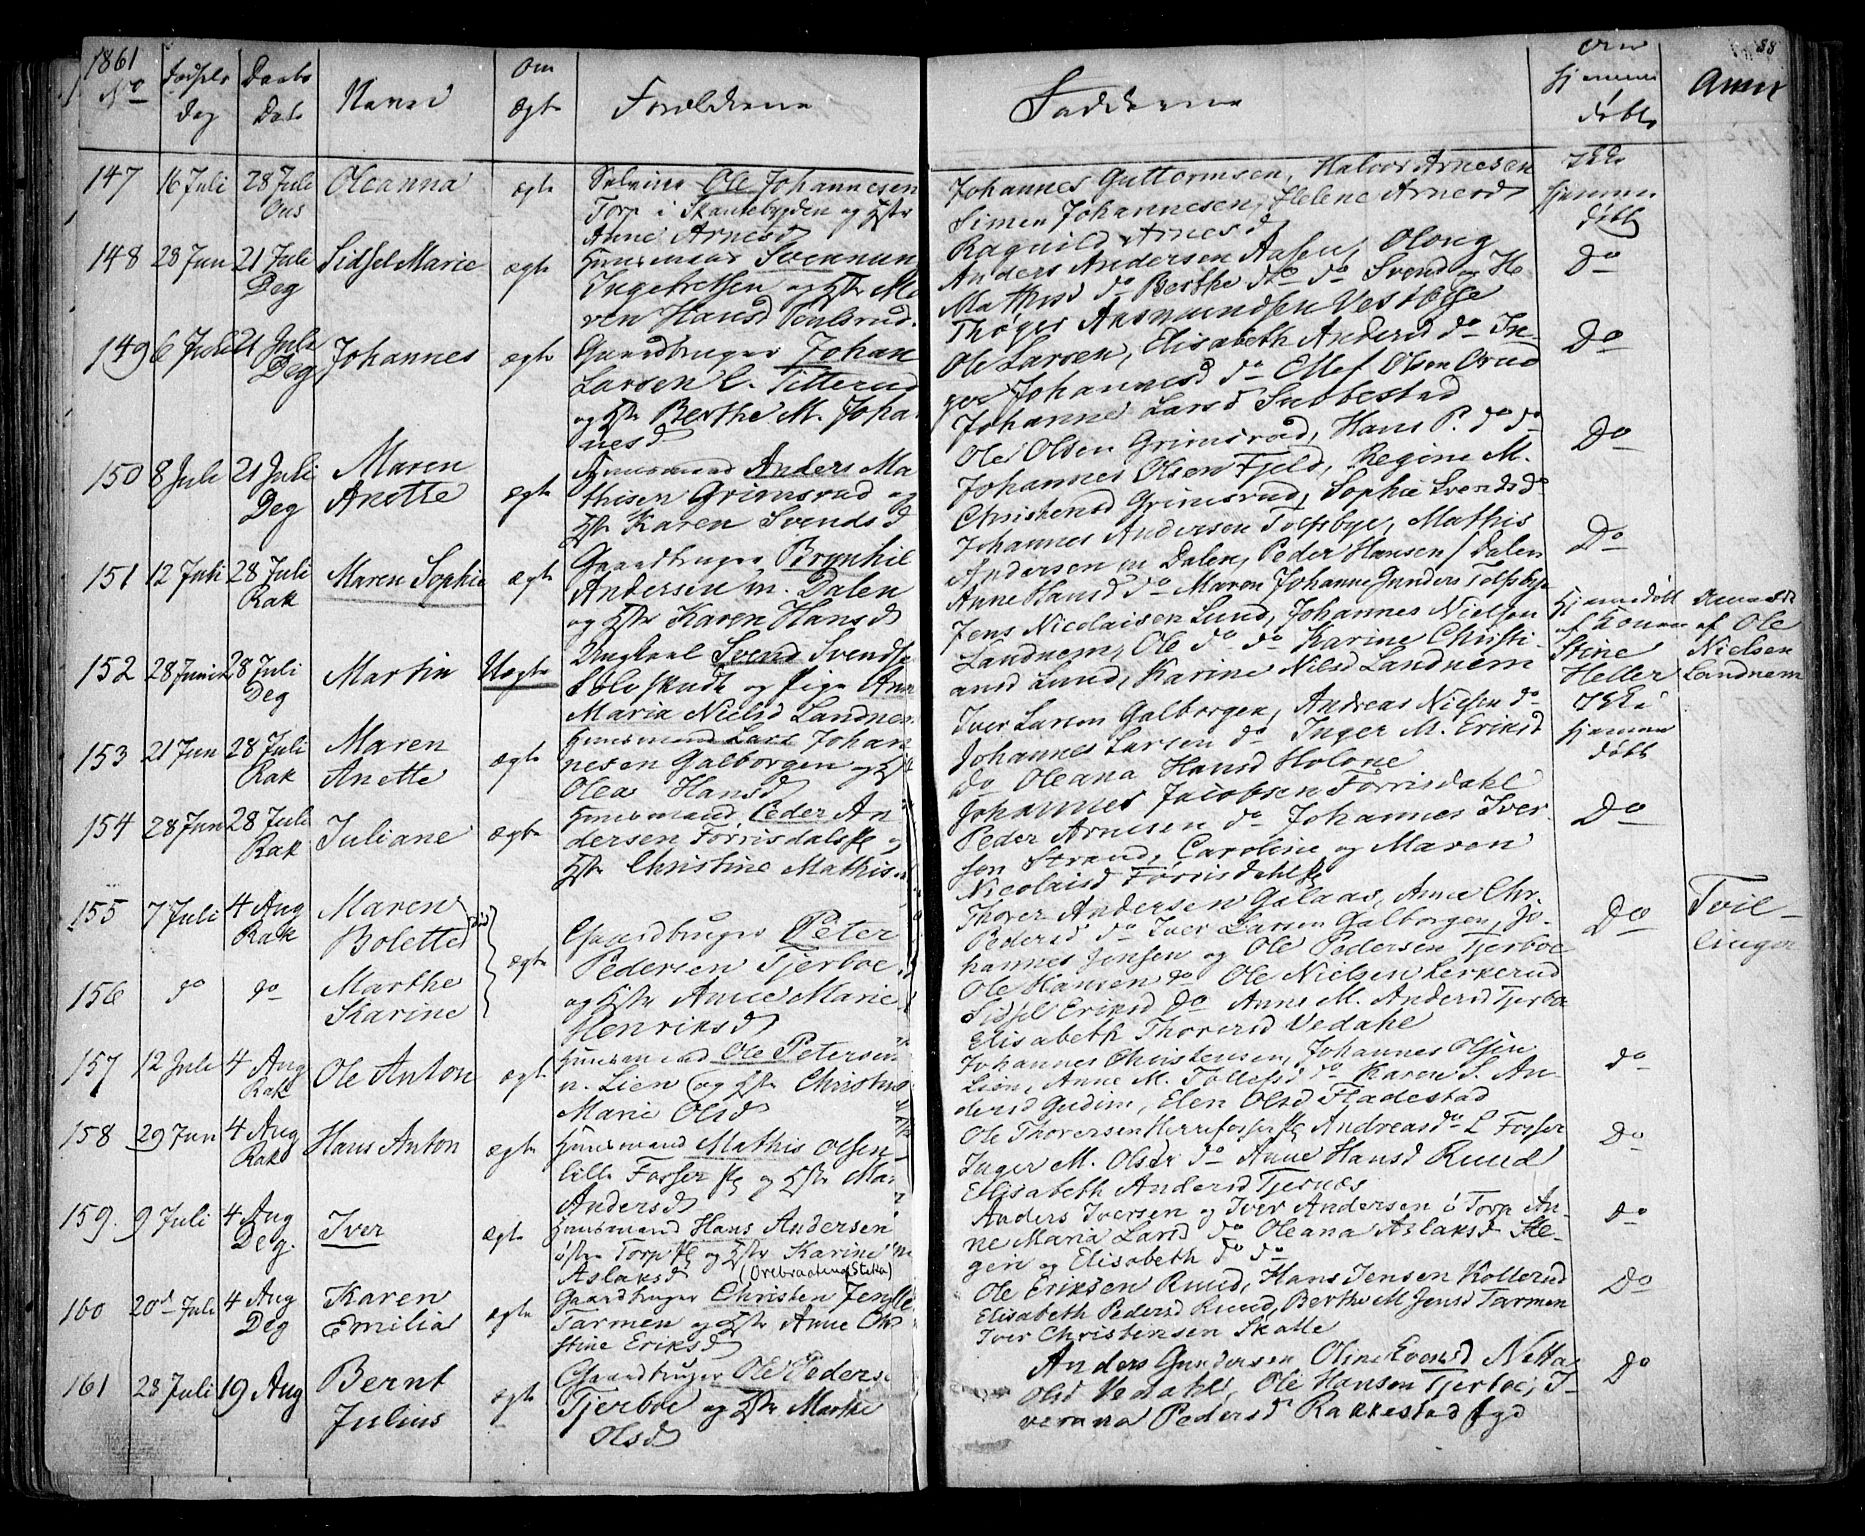 1861
No
Fødsels Dag
Daabs Dat
Navn
Om ægte
Forældrene
147 16 Juli 28 Juli Ous Oleanna ægte
Ole Johannesen
Torp i Skautebygden og Hstr
Anne Arnesd
148 23 Jun 21 Juli Deg Sidsel Marie ægte
Huusmand Svennun
Ingebretsen og Hstr Ma
ren Hansd Poulsrud
149 6 Juli 21 Juli Deg Johannes ægte
Gaardbruger Johan
Larsen L. Titterud
og Hstr Berthe M. Joha
nesd
150 8 Juli 21 Juli Deg Maren Anette ægte
Huusmand Anders Ma
thisen Grimsrud og
Hstr Karen Svendsd
151 12 Juli 28 Juli Rak Maren Sophie ægte
Gaardbruger Brynhil
Andersen m. Dalen
og Hstr Karen Hansd
152 28 Juni 28 Juli Deg Martin Uægte
Ungkarl Svend Svends
og Pige Ann
Maria Nielsd Landnem
153 21 Jun 28 Juli Rak Maren Anette ægte
Huusmand Lars Johan
nesen Galborgen og H
Olea Hansd
154 28 Jun 28 Juli Rak Juliane ægte
Huusmand Peder An
dersen Torrisdalsk og
Hstr Christine Mathis
155 7 Juli 4 Aug Rak Maren Bolette
ægte
Gaardbruger Peter
Pedersen Tjerboe
156 do do Marthe Karine
og Hstr Anne Marie
Henriksd
157 12 Juli 4 Aug Rak Ole Anton ægte
Huusmand Ole Petersen
n. Lien og Hstr Christine
Marie Olsd
158 29 Jun 4 Aug Rak Hans Anton ægte
Huusmand Mathis Olsen
lille Fosser og Hstr Mar
Andersd
159. 9 Juli 4 Aug Deg. Iver ægte
Huusmand Hans Andersen
østre Torp og Hstr Karine
Aslaksd
160 20d Juli 4 Aug Deg Karen Emilia ægte
Gaardbruger Christen Jens
Tarmen og Hstr Anne Chr
stine Eriksd
161 23 Juli 19 Aug Bernt Julius ægte
Gaardbruger Ole Peders
Tjerboe og Hstr Marthe
Olsd
Fadderne
Om Hjemme døbt
Anm
88
Johannes Guttormsen, Halvor Arnesen
Simen Johannesen, Helene Arnesd
Ragnild Arnesd
Ikke hjemme døbt
Anders Andersen Aasen, Olong
Mathisd do Berthe do do Svend og H
Thøger Aasmundsen Vestbøe
Do
Ole Larsen, Elisabeth Andersd do In-
ger Johannesd do Ellef Olsen Orud
Johanne Larsd Subbestad
Do
Ole Olsen Grimsrud, Hans P. do do
Johannes Olsen Fjeld, Regine M.
Christensd Grimsrud, Sophie Svendsd do
Do
Johannes Andersen Tolfsbye, Mathis
Andersen m Dalen, Peder Hansen / Dalen
Anne Hansd do Maren Johanne Gunders Tolfsbye
Do
Jens Nicolaisen Lund, Johannes Nielsen
Landnem, Ole do do Karine Christi
ansd Lund, Karine Nilsd Landnem
Hjemmedøbt af Konen Stine Heller
af Ole Nielsen Landnem
Iver Larsen Galborgen, Andreas Nielsen do
Johannes Larsen do Inger M. Eriksd
do Oleana Hansd Holone
Ikke hjemme døbt
Johannes Jacobsen Torrisdahl
Peder Arnesen do Johannes Iver
sen Strand, Caroline og Maren
Nicolaisd Torrisdahlsk
Do
Thorer Andersen Galaas, Anne Chr.
Pedersd do Iver Larsen Galborgen, Jo
hannes Jensen og Ole Pedersen Tjerboe
Ole Hansen do Ole Nielsen Lerkerud
Sidsel Eriksd do Anne M. Andersd Tjerbo
Elisabeth Thorersd Vedahl
Do
Tvil-
linger
Johannes Christensen, Johannes Olsen
Lien, Anne M. Tollefsd do Karen S. An-
dersd Gudim, Elen Olsd Fladestad
do
Ole Thorersen Andreas do L Fosser
Inger M. Olsdr do Anne Hansd Ruud
Elisabeth Andersd Tjernæs
Do
Anders Iversen og Iver Andersen ö Torp An-
ne Maria Larsd do Oleana Aslaksd He-
gen og Elisabeth do do
Do
Ole Eriksen Ruud, Hans Jensen Kollerud
Elisabeth Pedersd Ruud, Berthe M Jensd Tarmen
Iver Christensen Skolle
Do
Anders Gundersen Oline Evensd Netta
Olsd Vedahl, Ole Hansen Tjerboe, I-
verana Pedersd Rakkestad
Do